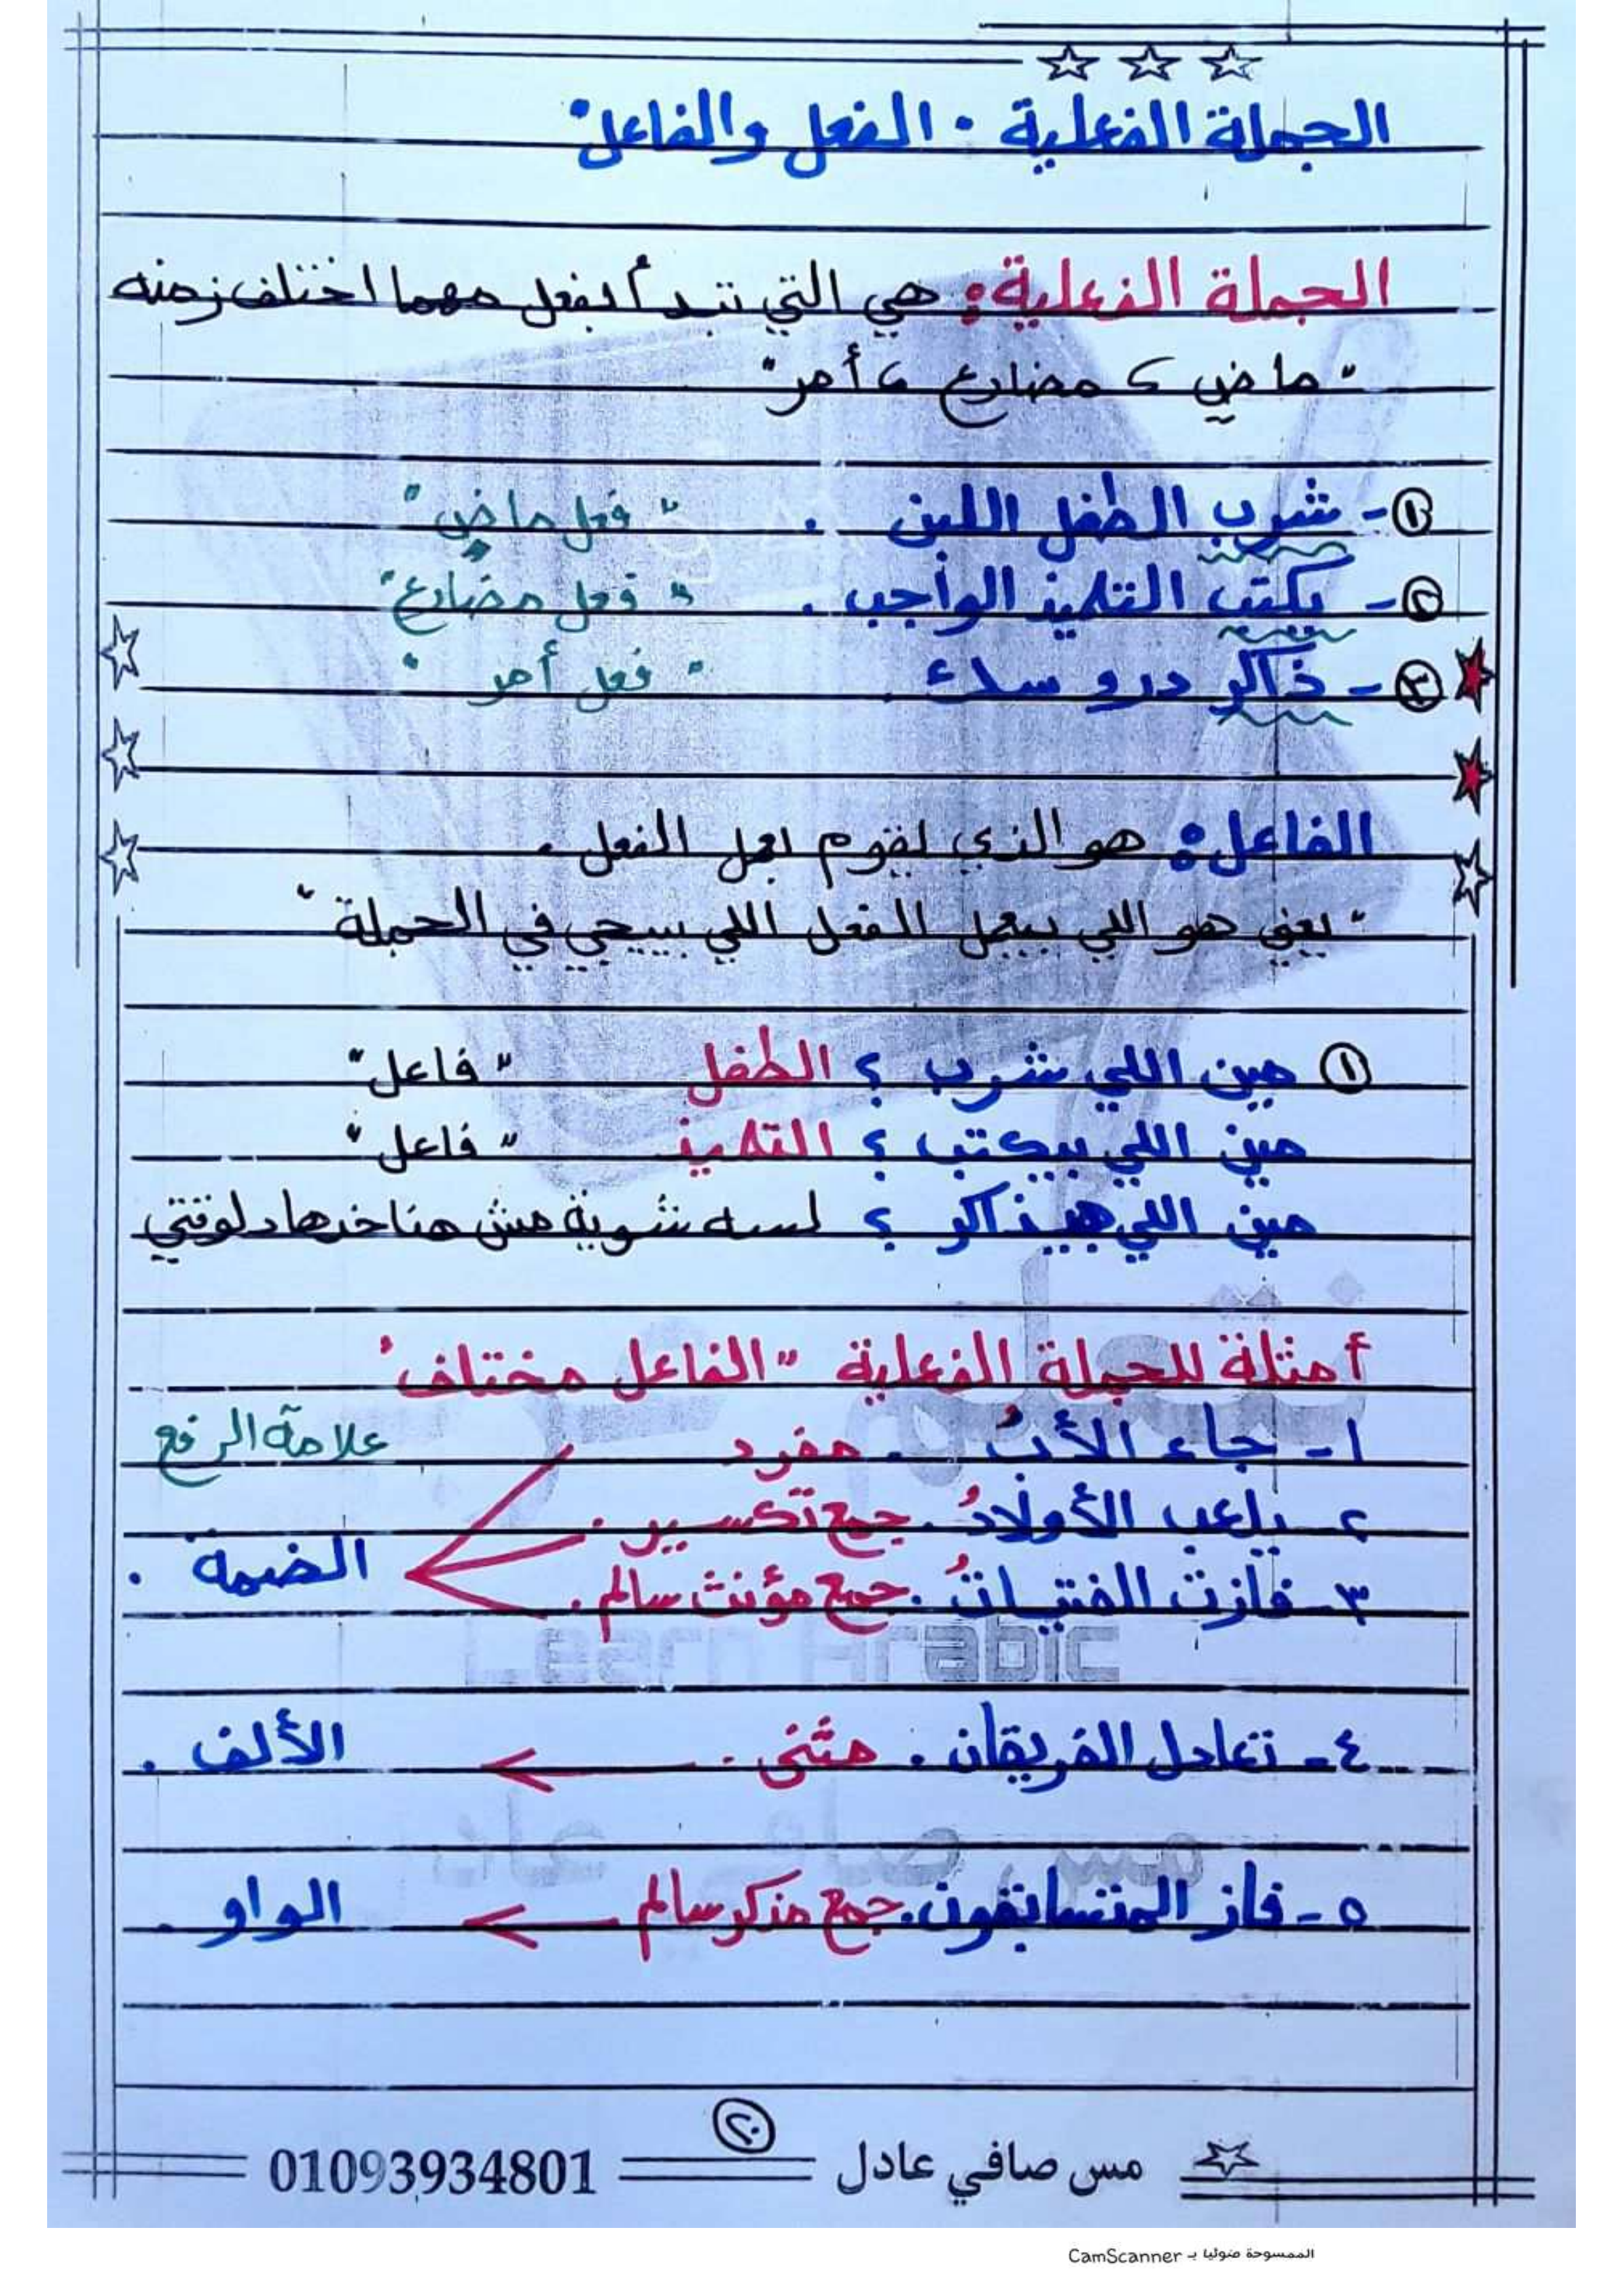 الجملة الفعلية " الفعل والفاعل "
الجملة الفعلية: هي التي تبدأ بفعل مهما اختلف زمنه
" ماضي ، مضارع ، أمر "
①- شرب الطفل اللبن . " فعل ماضي "
②- يكتب التلميذ الواجب . " فعل مضارع "
③- ذاكر دروسك . " فعل أمر "
الفاعل: هو الذي يقوم بعمل الفعل .
" يعني هو اللي بيعمل الفعل اللي بييجي في الجملة "
① مين اللي شرب ؟ الطفل " فاعل "
مين اللي بيكتب ؟ التلميذ " فاعل "
مين اللي هيذاكر ؟ لسه شوية مش هناخدها دلوقتي
أمثلة للجملة الفعلية " الفاعل مختلف "
علامة الرفع
١- جاء الأبُ . مفرد
٢- يلعب الأولادُ . جمع تكسير .
الضمة .
٣- فازت الفتياتُ . جمع مؤنث سالم .
Learn Arabic
٤- تعادل الفريقان . مثنى . الألف .
مس صافي عادل
٥- فاز المتسابقون . جمع مذكر سالم الواو .
٢٠
مس صافي عادل 01093934801
الممسوحة ضوئيا بـ CamScanner